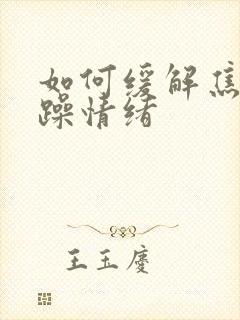 如何缓解焦
躁情绪
王玉庆